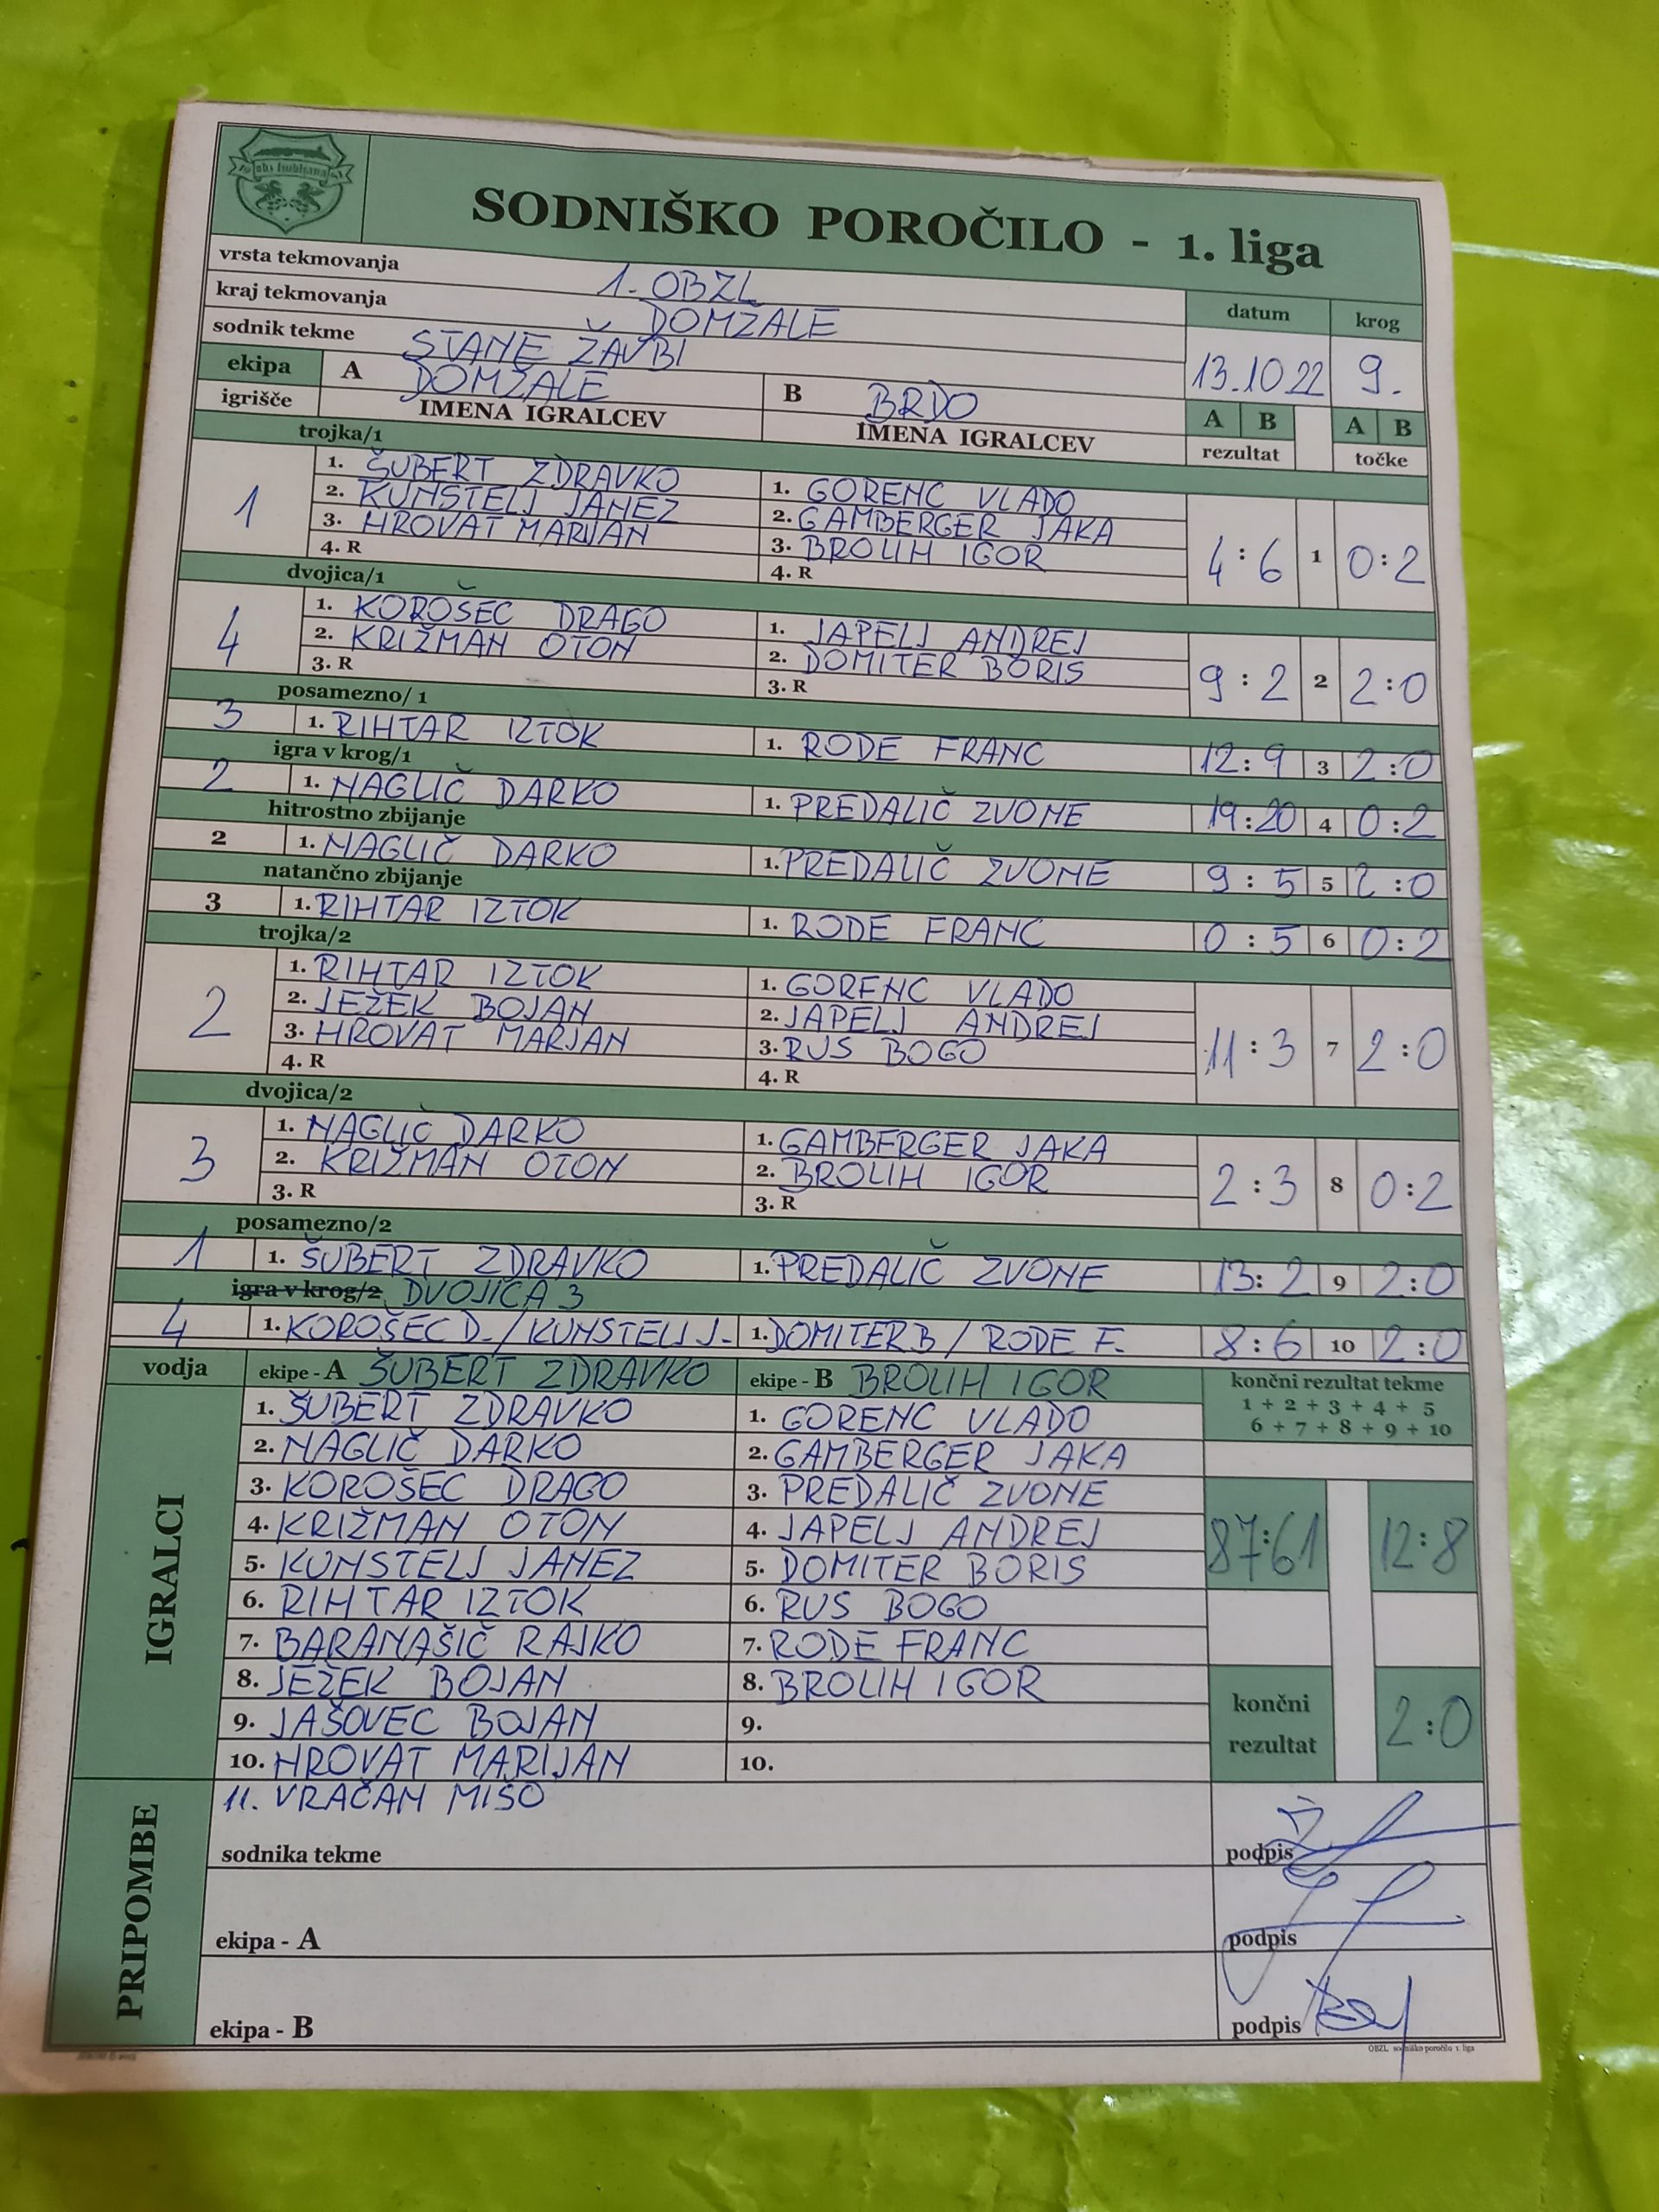 obz ljubljana
SODNIŠKO POROČILO - 1. liga
vrsta tekmovanja 1. OBZL
kraj tekmovanja DOMŽALE
datum krog
sodnik tekme STANE ZAVBI
13.10.22 9.
ekipa A DOMŽALE B BRDO
igrišče IMENA IGRALCEV IMENA IGRALCEV A B A B
rezultat točke
trojka/1
1. ŠUBERT ZDRAVKO 1. GORENC VLADO
2. KUNSTELJ JANEZ 2. GAMBERGER JAKA
1 3. HROVAT MARIJAN 3. BROLIH IGOR 4:6 1 0:2
4. R 4. R
dvojica/1
1. KOROŠEC DRAGO 1. JAPELJ ANDREJ
4 2. KRIŽMAN OTON 2. DOMITER BORIS 9:2 2 2:0
3. R 3. R
posamezno/ 1
3 1. RIHTAR IZTOK 1. RODE FRANC 12:9 3 2:0
igra v krog/1
2 1. NAGLIČ DARKO 1. PREDALIČ ZVONE 19:20 4 0:2
hitrostno zbijanje
2 1. NAGLIČ DARKO 1. PREDALIČ ZVONE 9:5 5 2:0
natančno zbijanje
3 1. RIHTAR IZTOK 1. RODE FRANC 0:5 6 0:2
trojka/2
1. RIHTAR IZTOK 1. GORENC VLADO
2. JEŽEK BOJAN 2. JAPELJ ANDREJ
2 3. HROVAT MARJAN 3. RUS BOGO 11:3 7 2:0
4. R 4. R
dvojica/2
1. NAGLIČ DARKO 1. GAMBERGER JAKA
3 2. KRIŽMAN OTON 2. BROLIH IGOR 2:3 8 0:2
3. R 3. R
posamezno/2
1 1. ŠUBERT ZDRAVKO 1. PREDALIČ ZVONE 13:2 9 2:0
igra v krog/2 DVOJICA 3
4 1. KOROŠEC D. / KUNSTELJ J. 1. DOMITER B / RODE F. 8:6 10 2:0
vodja ekipe - A ŠUBERT ZDRAVKO ekipe - B BROLIH IGOR končni rezultat tekme
1 + 2 + 3 + 4 + 5
6 + 7 + 8 + 9 + 10
IGRALCI
1. ŠUBERT ZDRAVKO 1. GORENC VLADO
2. NAGLIČ DARKO 2. GAMBERGER JAKA
3. KOROŠEC DRAGO 3. PREDALIČ ZVONE
4. KRIŽMAN OTON 4. JAPELJ ANDREJ 87:61 12:8
5. KUNSTELJ JANEZ 5. DOMITER BORIS
6. RIHTAR IZTOK 6. RUS BOGO
7. BARANAŠIČ RAJKO 7. RODE FRANC
8. JEŽEK BOJAN 8. BROLIH IGOR
9. JAŠOVEC BOJAN 9. končni rezultat 2:0
10. HROVAT MARIJAN 10.
PRIPOMBE
11. VRAČAN MIŠO
sodnika tekme podpis
ekipa - A podpis
ekipa - B podpis
OBZL sodniško poročilo 1. liga